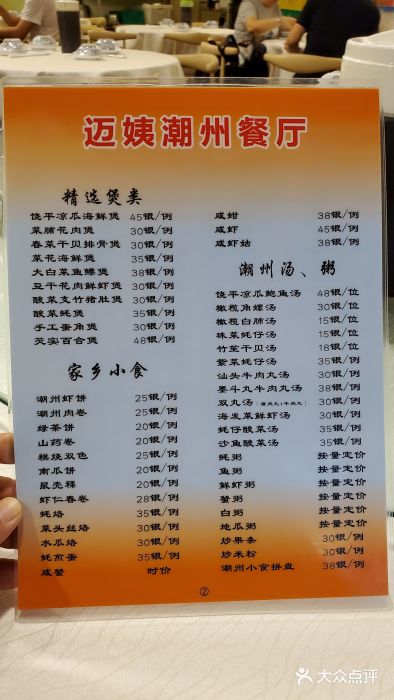 迈姨潮州餐厅
精选煲类
饶平凉瓜海鲜煲 45银/例
菜脯花肉煲 30银/例
春菜干贝排骨煲 30银/例
菜花海鲜煲 35银/例
大白菜鱼螺煲 38银/例
豆干花肉鲜虾煲 30银/例
酸菜支竹猪肚煲 30银/例
酸菜蚝煲 35银/例
手工蛋角煲 30银/例
芡实百合煲 48银/例
家乡小食
潮州虾饼 25银/例
潮州肉卷 25银/例
绿茶饼 20银/例
山药卷 20银/例
糕烧双色 30银/例
南瓜饼 20银/例
鼠壳粿 20银/例
虾仁春卷 28银/例
蚝烙 35银/例
菜头丝烙 30银/例
水瓜烙 30银/例
蚝煎蛋 35银/例
咸蟹 时价
咸蚶 38银/例
咸虾 45银/例
咸虾姑 38银/例
潮州汤、粥
饶平凉瓜鲍鱼汤 48银/位
橄榄角螺汤 30银/位
橄榄白肺汤 15银/位
珠菜蚝仔汤 15银/位
竹笙干贝汤 18银/位
紫菜蚝仔汤 35银/例
汕头牛肉丸汤 30银/例
墨斗丸牛肉丸汤 38银/例
双丸汤 30银/例
海发菜鲜虾汤 38银/例
蚝仔酸菜汤 35银/例
沙鱼酸菜汤 35银/例
蚝粥 按量定价
鱼粥 按量定价
鲜虾粥 按量定价
蟹粥 按量定价
白粥 按量定价
地瓜粥 按量定价
炒果条 30银/例
炒米粉 30银/例
潮州小食拼盘 38银/例
②
大众点评